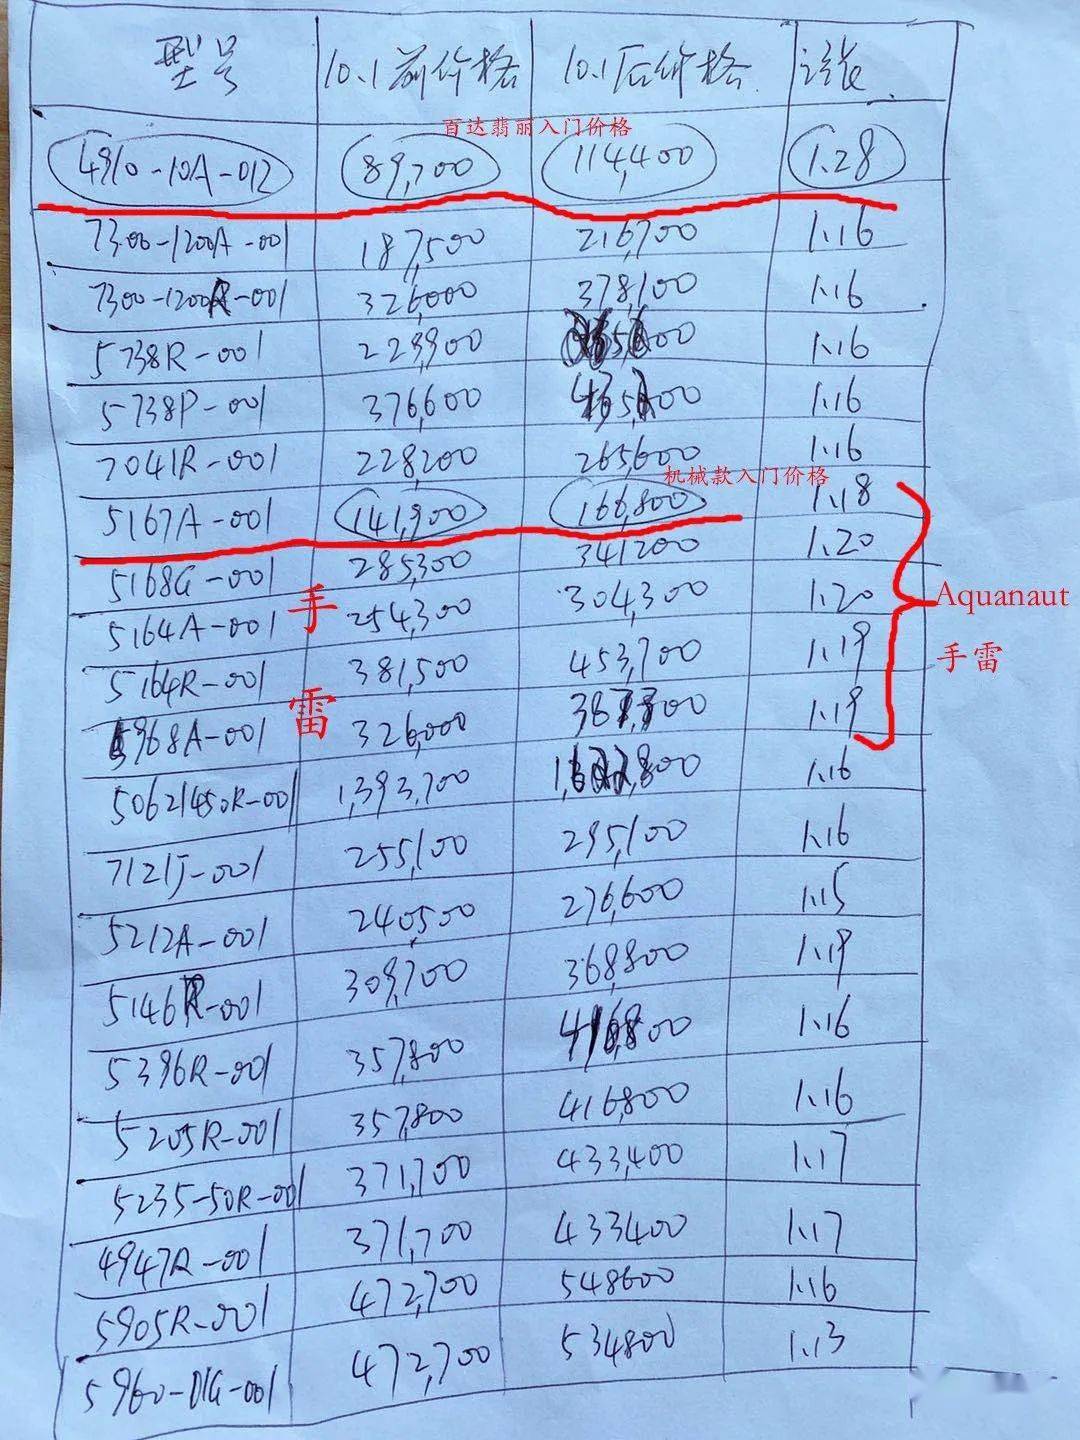 型号 10.1前价格 10.1后价格 涨
百达翡丽入门价格
4910-10A-012 89,700 114,400 1.28
7300-1200A-001 187,500 216,700 1.16
7300-1200R-001 326,000 378,100 1.16
5738R-001 229,900 1.16
5738P-001 376,600 1.16
7041R-001 228,200 265,600 1.16
机械款入门价格
5167A-001 141,900 166,800 1.18
5168G-001 285,300 341200 1.20
5164A-001 254,300 304,300 1.20
5164R-001 381,500 453,700 1.19
5968A-001 326,000 1.19
手雷
Aquanaut
手雷
5062/450R-001 1,393,700 1.16
7121J-001 255,100 295,100 1.16
5212A-001 240,500 276,600 1.15
5146R-001 309,700 368,800 1.19
5396R-001 357,800 1.16
5205R-001 357,800 416,800 1.16
5235-50R-001 371,700 433,400 1.17
4947R-001 371,700 433400 1.17
5905R-001 472,700 548600 1.16
5960-01G-001 472,700 534800 1.13